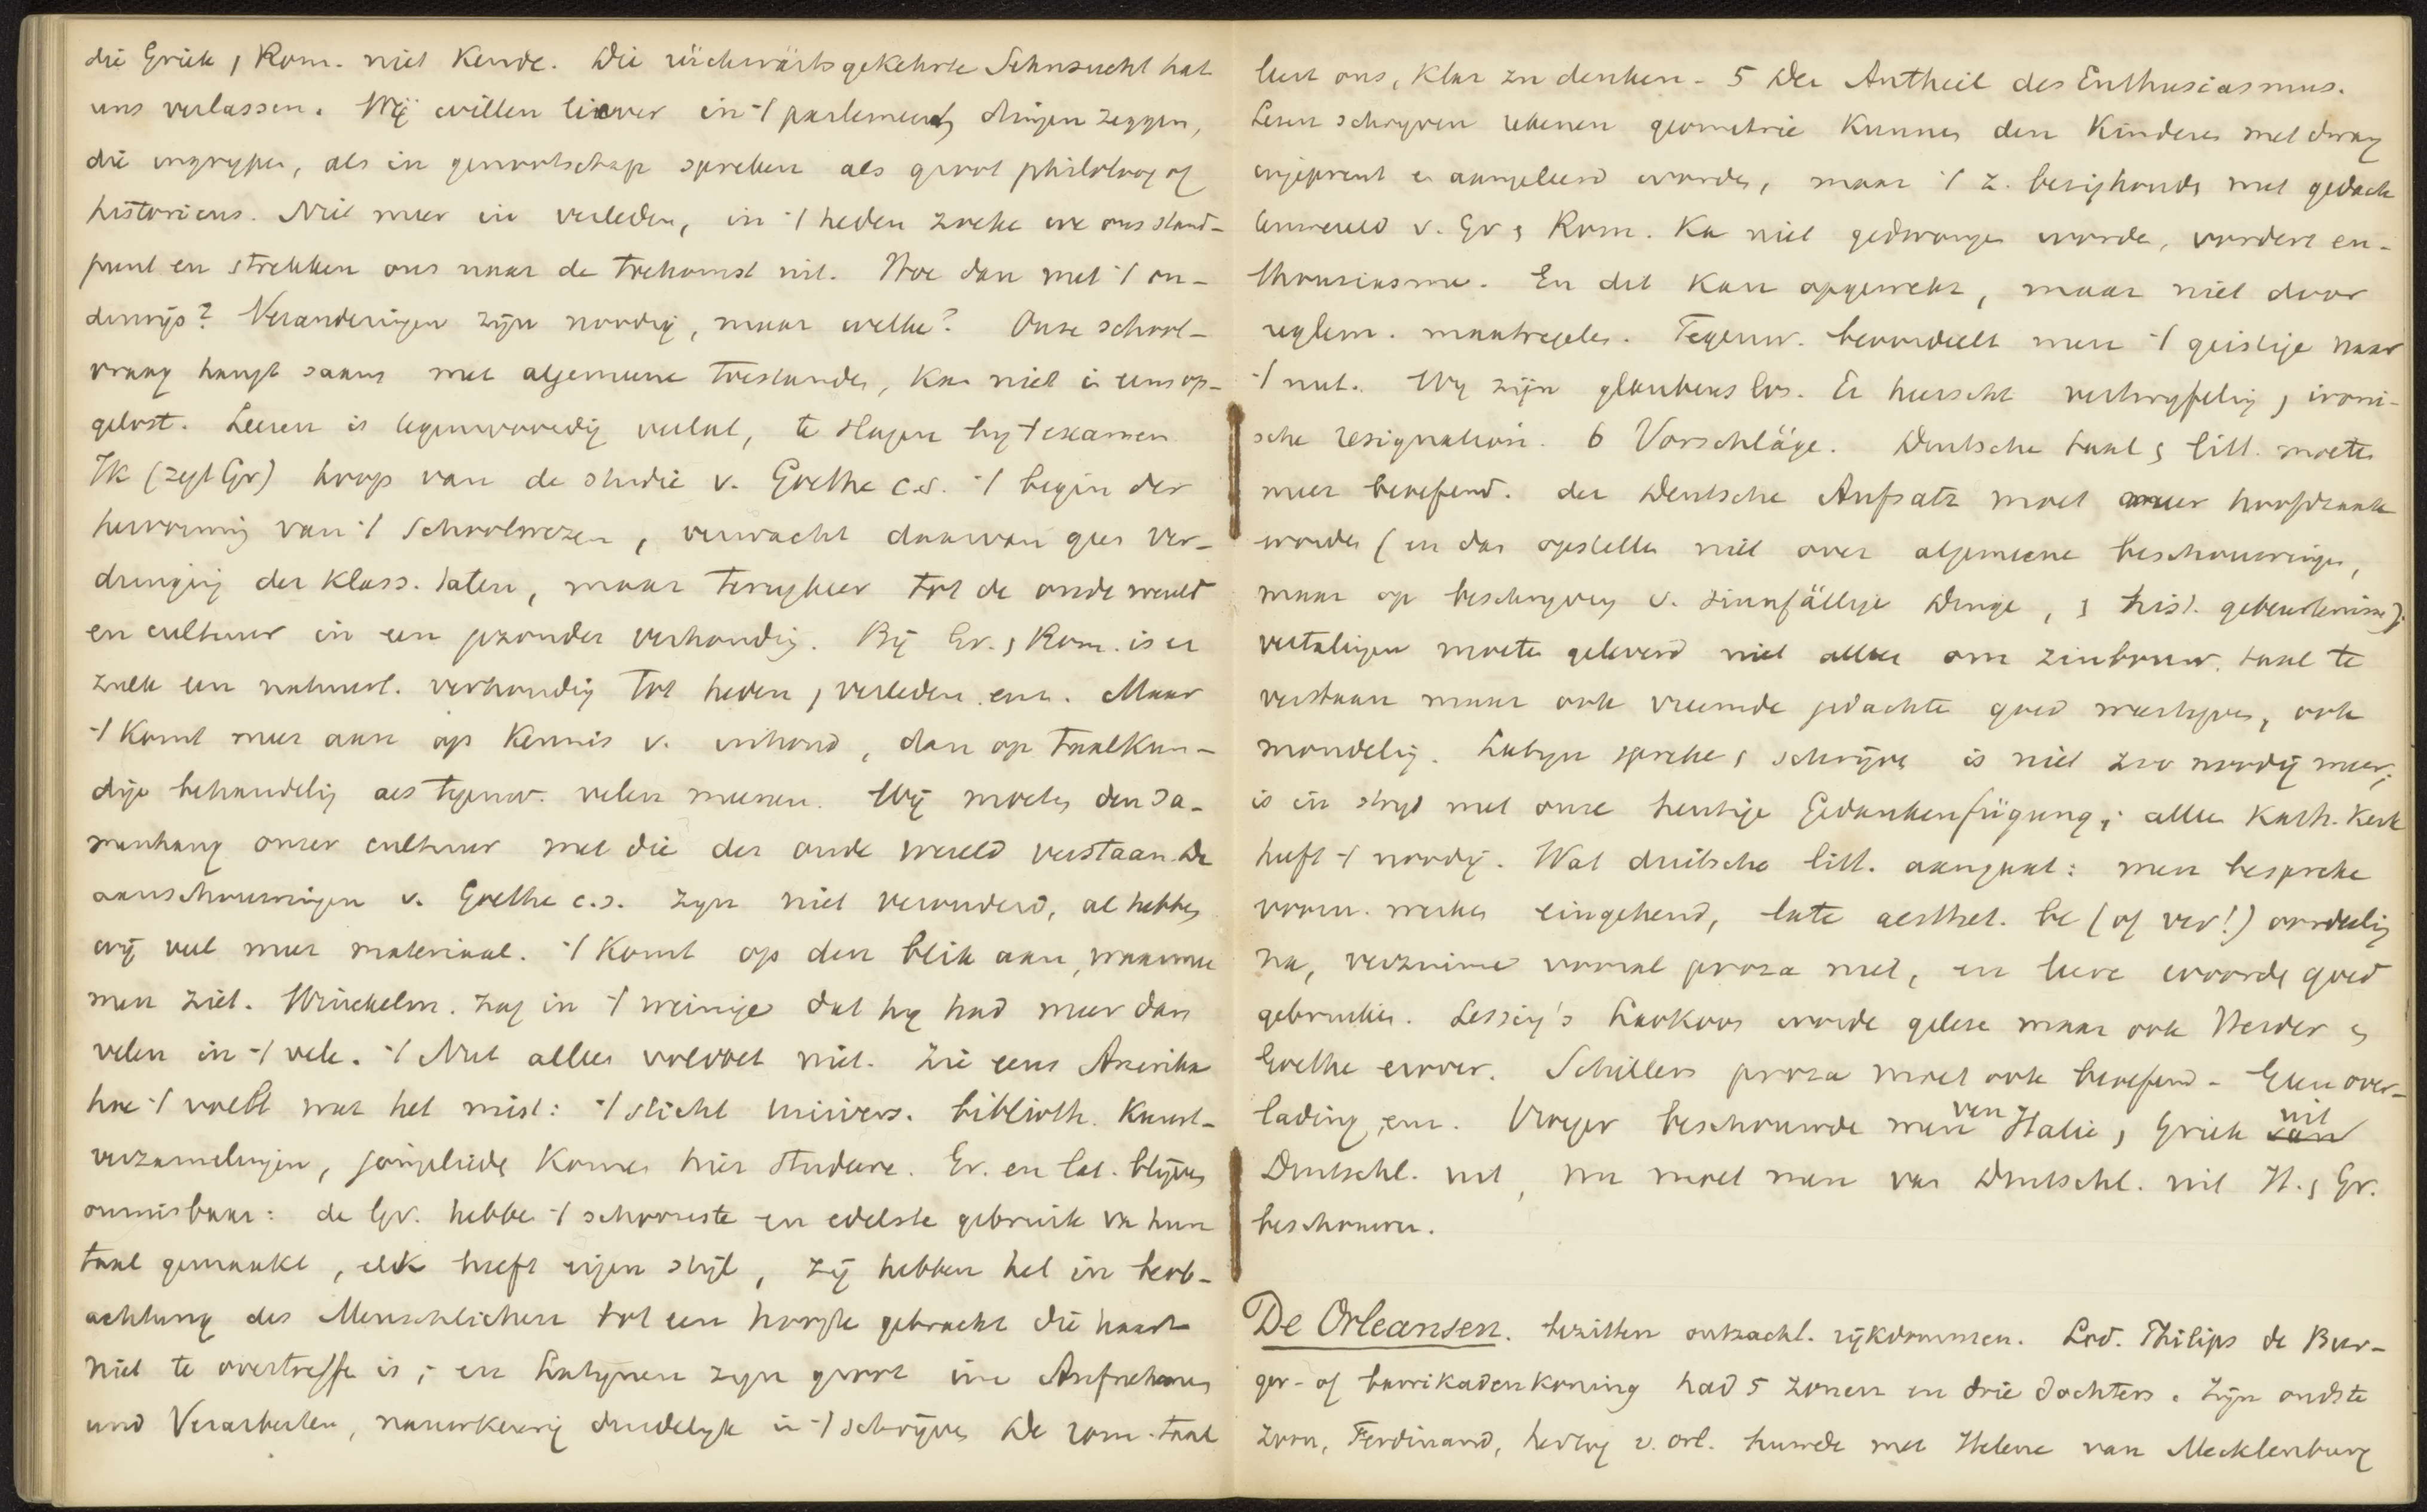 die Griek, Rom. niet kende. Die rückwärts gekehrte Sehnsucht hat
uns verlassen. Wij willen liever in 't parlement dingen zeggen,
die ingrijpen, als in genootschap spreken als groot philoloog of
historicus. Niet meer in verleden, in 't heden zoeke we ons stand-
punt en strekken ons naar de toekomst uit. Hoe dan met 't on-
derwijs? Veranderingen zijn noodig, maar welke? Onze school-
vraag hangt saam met algemeene toestanden, kan niet in eens op-
gelost. Leeren is tegenwoordig veelal, te slagen bij 't examen.
Ik (zegt Gr) hoop van de studie v. Goethe c.s. 't begin der
hervorming van 't Schoolwezen, verwacht daarvan geen ver-
dringing der klass. talen, maar terugkeer tot de oude wereld
en cultuur in een gezonder verhouding. Bij Gr. , Rom. is er
zulk een natuurl. verhoudig tot heden , verleden enz. Maar
't komt meer aan op kennis v. inhoud, dan op taalkun-
dige behandelig als tegenw. velen meenen. Wij moeten den sa-
menhang onzer cultuur met die der oude wereld verstaan. De
aanschouwingen v. Goethe c.s. zyn niet veranderd, al hebben
wij veel meer materiaal. 't Komt op den blik aan, waarmee
men ziet. Winckelm. zag in 't weinige dat hy had meer dan
velen in 't vele. 't Nut alleen voldoet niet. Zie eens Amerika
hoe 't voelt wat het mist: 't sticht univers. biblioth. kunst-
verzamelingen, jongelieden komen hier studeere. Gr. en lat. blijven
onmisbaar: de Gr. hebbe 't schoonste en edelste gebruik va hun
taal gemaakt, elk heeft eigen stijl, zij hebben het in beob-
achtung des Menschlichen tot een hoogte gebracht die haast
niet te overtreffe is; en Latynen zyn groot im Aufnehmen
und Verarbeiten, nauwkeurig duidelyk in 't schrijven. De rom. taal
leert ons, klar zu denken - 5 Der Antheil des Enthusiasmus.
Lezen schryven rekenen geometrie kunnen den kinderen met dwang
ingeprent en aangeleerd worden, maar 't z. bezighoude met gedach
tenwereld v. Gr , Rom. ka niet gedwonge worde, vordert en-
thousiasme. En dit kan opgewekt, maar niet door
reglem. maatregelen. Tegenw. beoordeelt men 't geistige naar
't nut. Wy zijn glaubenslos. Er heerscht vertwyfelig , ironi-
sche resignation. 6 Vorschläge. Deutsche taal , litt. moeten
meer beoefend. der Deutsche Aufsatz moet meer hoofdzaak
worden (en dan opstellen niet over algemeene beschouwingen,
maar op beschryving v. sinnfällige Dinge, , hist. gebeurtenissen);
vertalingen moeten geleverd niet alleen om zinbouw. taal te
verstaan maar ook vreemde gedachte goed weergeven, ook
mondelig. Latyn spreke , schrijve is niet zoo noodig meer;
is in stryd met onze heutige Gedankenfügung; alleen Kath. Kerk
heeft 't noodig. Wat duitsche litt. aangaat: men bespreke
voorn. werken eingehend, late aesthet. be (of ver!) oordeelig
na, verzuime vooral proza niet, en leere woorde goed
gebruiken. Lessing's Laokoon worde geleze maar ook Herder en
Goethe erover. Schillers proza moet ook beoefend - Geen over-
lading, enz. Vroeger beschouwde men van Italie , Griek uit
Deutschl. uit, nu moet men van Deutschl. uit It. , Gr.
beschouwen.
De Orleansen. bezitten ontzachl. rijkdommen. Lod. Philips de Bur-
ger- of barrikadenkoning had 5 zonen en drie dochters. Zijn oudste
zoon, Ferdinand, hertog v. Orl. huwde met Helene van Mecklenburg